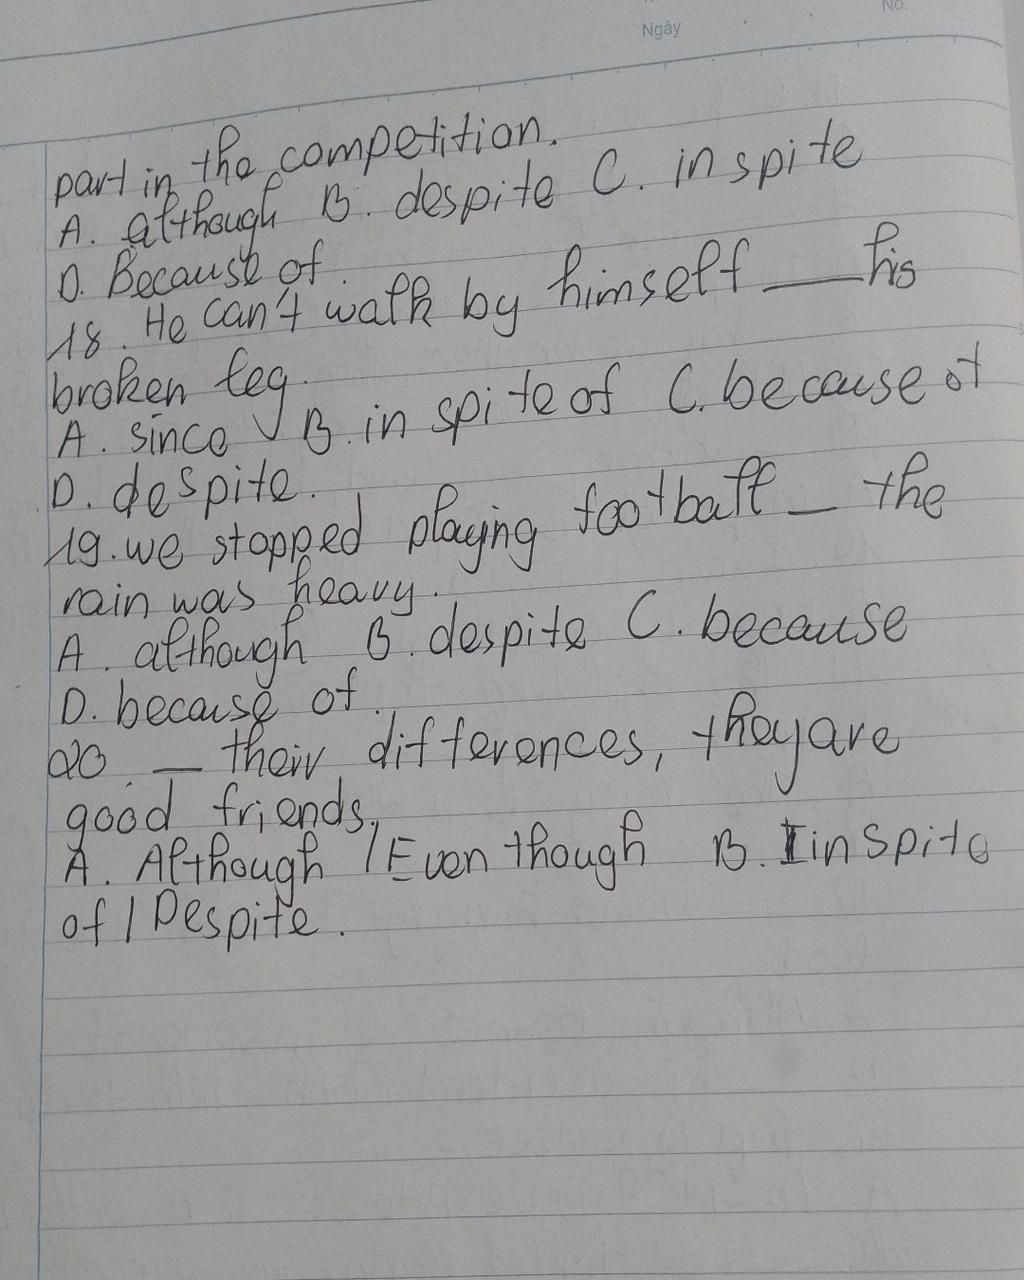 No.
Ngày
part in the competition.
A. although B. despite C. in spite
D. Because of.
18. He can't walk by himself ___ his
broken leg.
A. since B. in spite of C. because of
D. despite.
19. we stopped playing football _ the
rain was heavy.
A. although B. despite C. because
D. because of.
20. _ their differences, they are
good friends.
A. Although / Even though B. In spite
of / Despite.